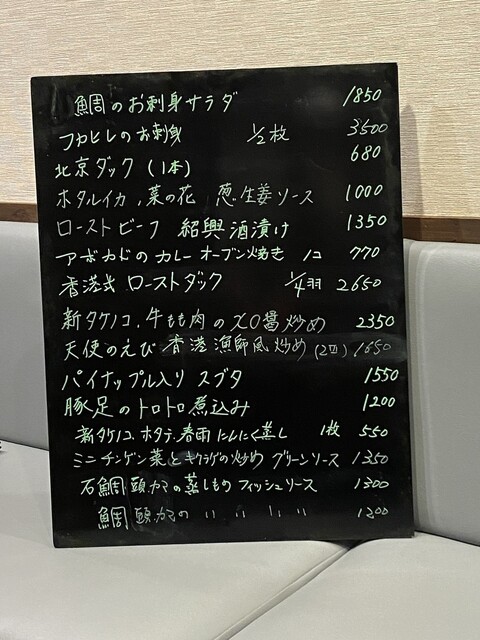 鯛のお刺身サラダ 1850
フカヒレのお刺身 1/2枚 3500
北京ダック (1本) 680
ホタルイカ、菜の花 葱、生姜ソース 1000
ローストビーフ 紹興酒漬け 1350
アボカドのカレーオーブン焼き 1コ 770
香港式 ローストダック 1/4羽 2650
新タケノコ、牛もも肉のXO醤炒め 2350
天使のえび 香港漁師風炒め (2皿) 1650
パイナップル入り スブタ 1550
豚足のトロトロ煮込み 1200
新タケノコ、ホタテ、春雨にんにく蒸し 1枚 550
ミニチンゲン菜とキクラゲの炒め グリーンソース 1350
石鯛 頭、カマの蒸しもの フィッシュソース 1300
鯛 頭、カマの 〃 〃 1200